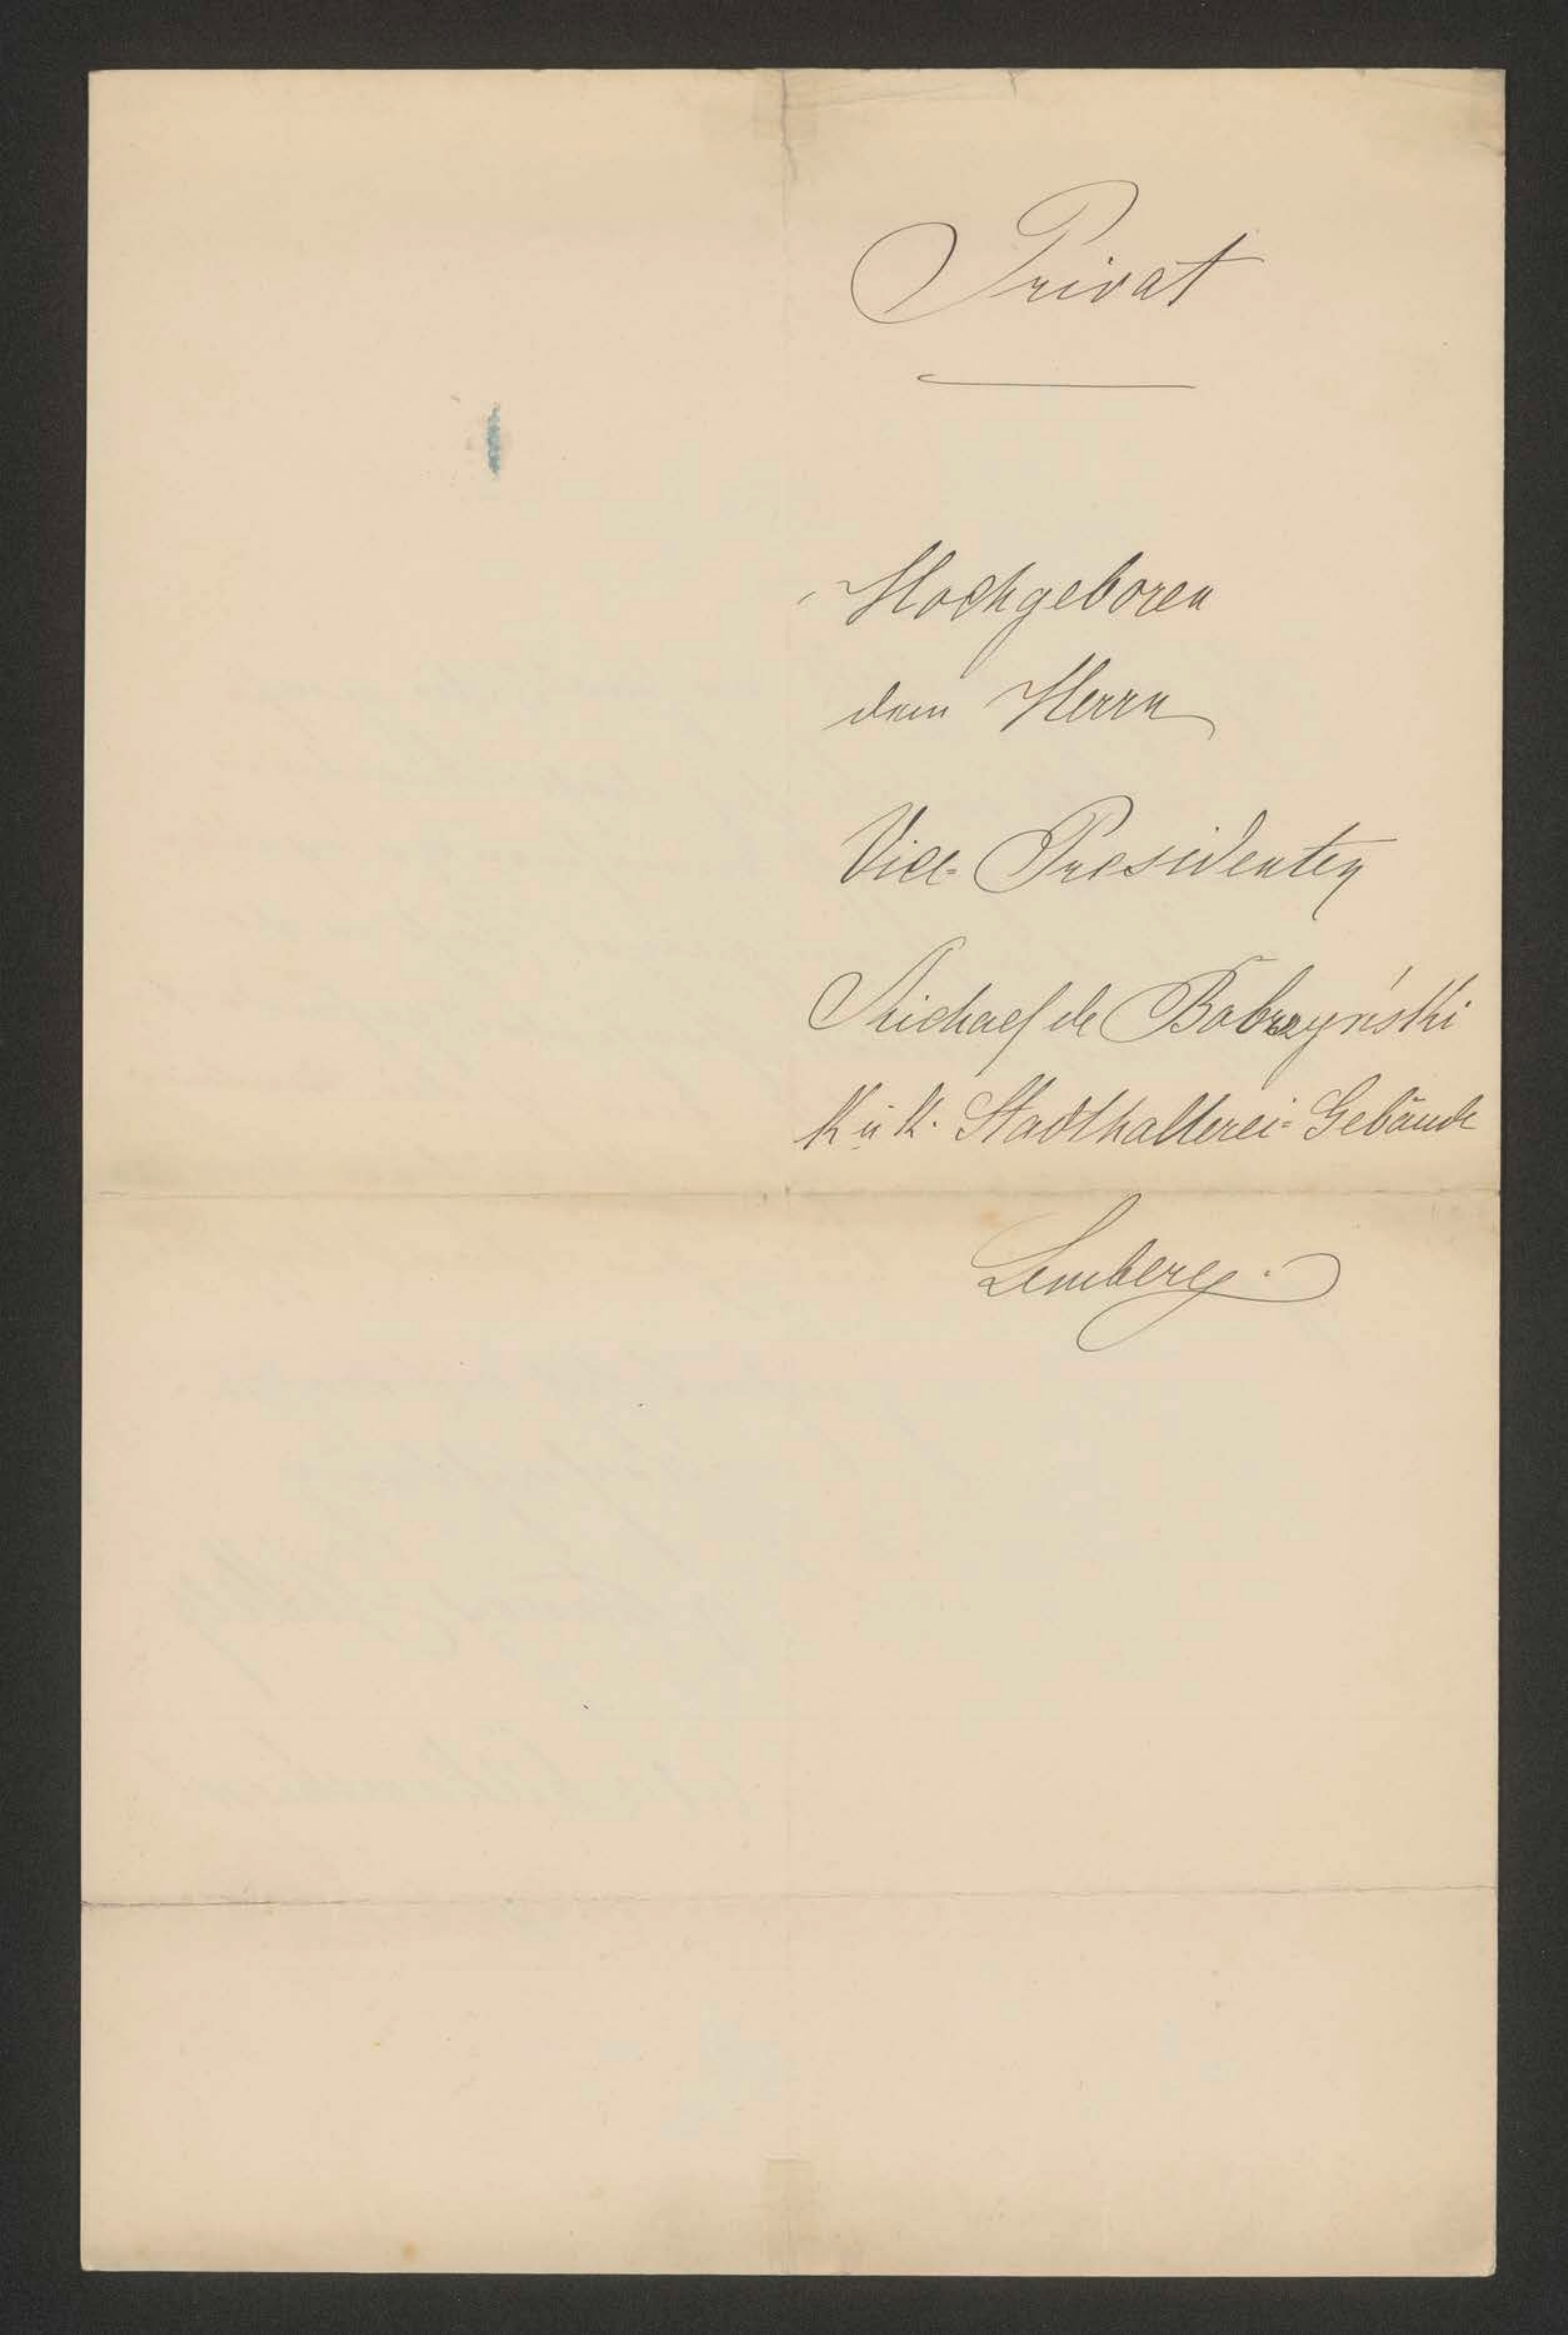 Privat
Hochgeboren
dem Herrn
Vice-Presidenten
Michael de Bobrzyński
K u K. Stadthalterei-Gebäude
Lemberg.